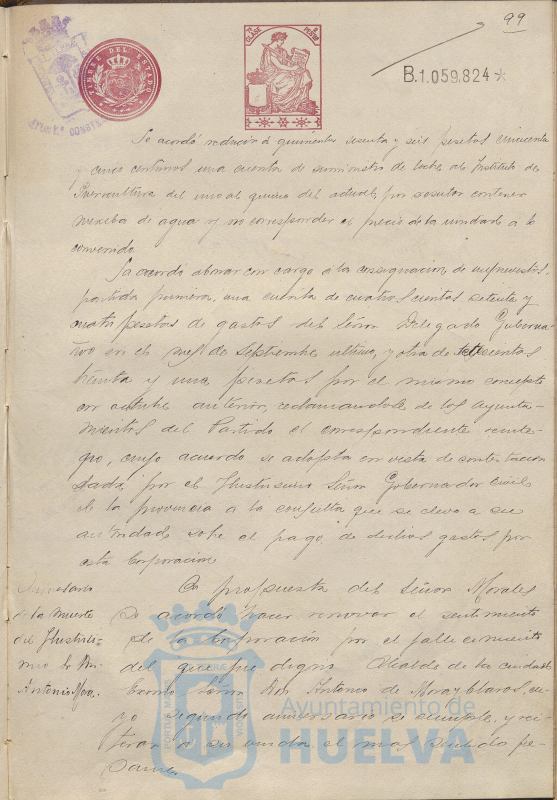 99
TIMBRE DEL ESTADO
7ª CLASE
B.1.059.824*
Se acordó reducir a quinientas sesenta y seis pesetas cincuenta
y cinco centimos una cuenta de suministro de leche al Instituto de
Puericultura del uno al quince del actual, por resultar contener
mezcla de agua y no corresponder el precio de la unidad a lo
convenido.
Se acordó abonar con cargo a la consignación de imprevistos,
partida primera, una cuenta de cuatrocientas setenta y
cuatro pesetas de gastos del Señor Delegado Guberna-
tivo en el mes de Septiembre ultimo, y otra de
treinta y una pesetas por el mismo concepto
en octubre anterior, reclamandole de los Ayunta-
mientos del Partido el correspondiente reinte-
gro, cuyo acuerdo se adopta en vista de contestacion
dada por el Ilustrisimo Señor Gobernador Civil
de la provincia a la consulta que se elevó a su
autoridad sobre el pago de dichos gastos por
esta Corporacion
Aniversario
de la muerte
del Ilustrisi-
mo Sr. Dn.
Antonio Mora
A propuesta del Señor Morales
se acordó hacer renovar el sentimiento
de la Corporación por el fallecimiento
del que fue digno Alcalde de la ciudad
Don Antonio de Mora y Claros, cu-
yo segundo aniversario se cumple, y rei-
terar a su viuda el mas sentido pe-
same.
Ayuntamiento de
HUELVA